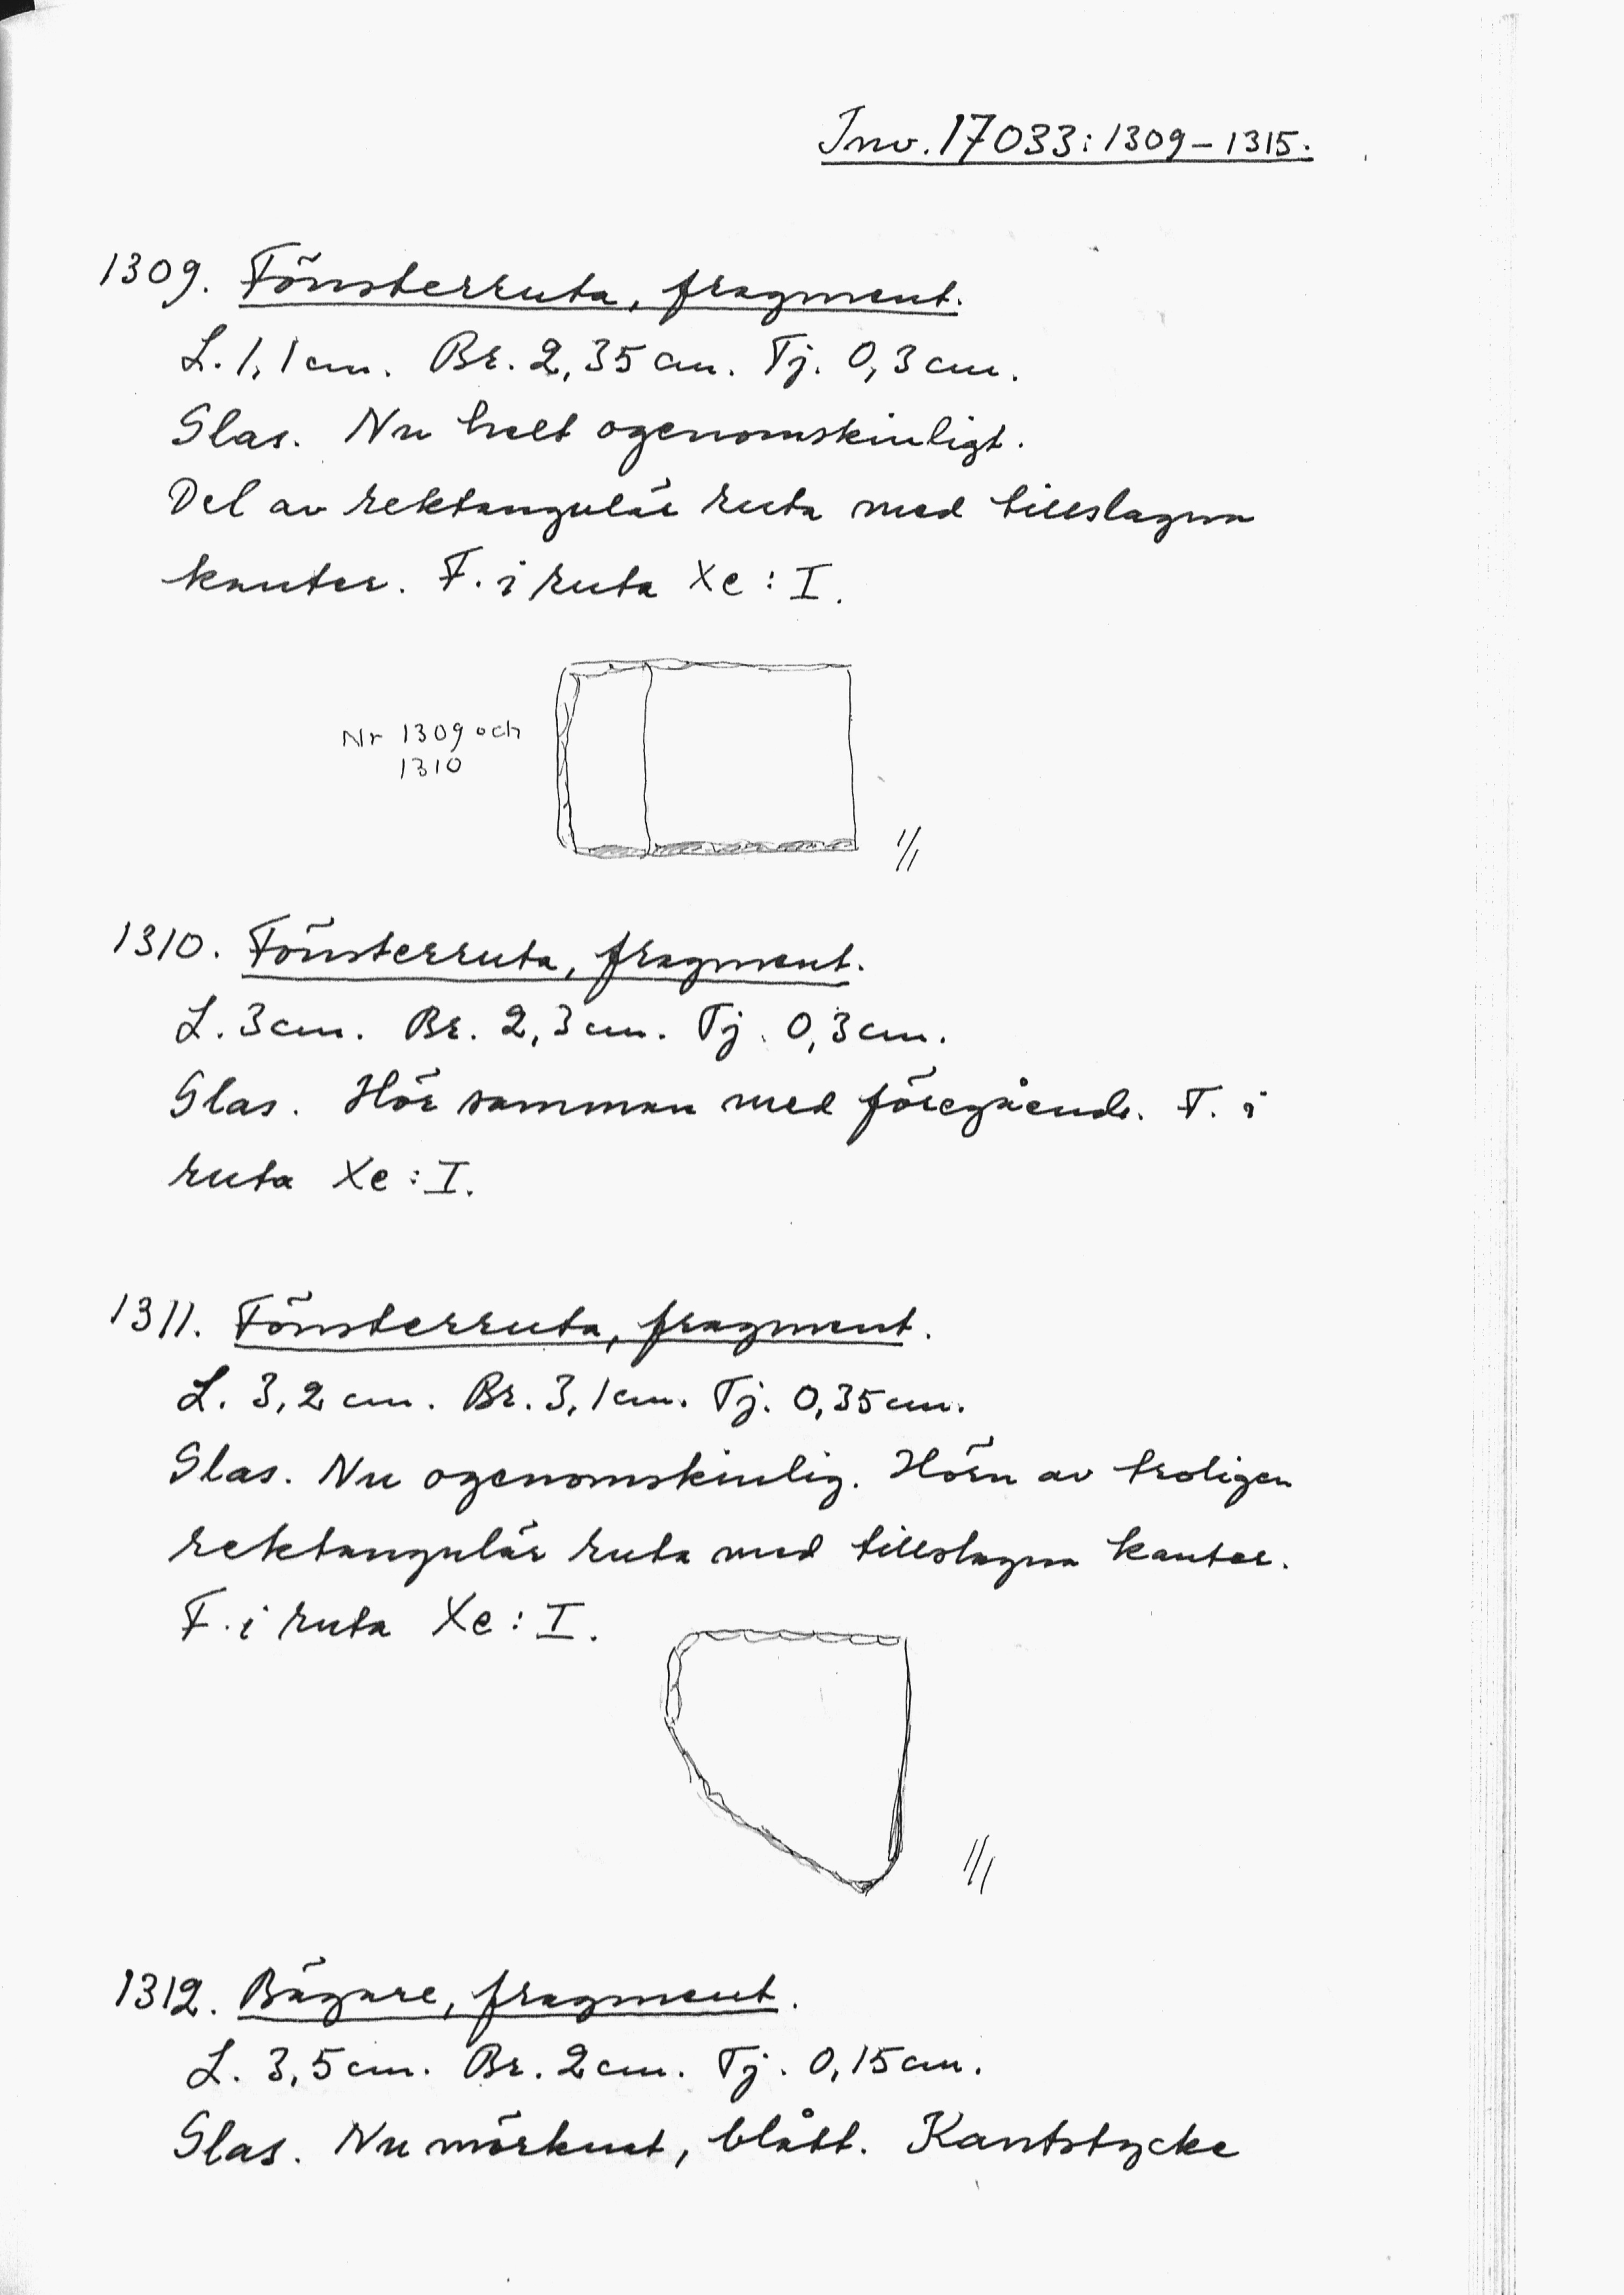 Inv. 17033:1309-1315.
1309. Fönsterruta, fragment.
L. 1,1 cm. Br. 2,35 cm. Tj. 0,3 cm.
Glas. Nu helt ogenomskinligt.
Del av rektangulär ruta med tillslagna
kanter. F. i ruta Xe:I.
Nr 1309 och
1310
1/1
1310. Fönsterruta, fragment.
L. 3 cm. Br. 2,3 cm. Tj. 0,3 cm.
Glas. Hör samman med föregående. F. i
ruta Xe:I.
1311. Fönsterruta, fragment.
L. 3,2 cm. Br. 3,1 cm. Tj. 0,35 cm.
Glas. Nu ogenomskinlig. Hörn av troligen
rektangulär ruta med tillslagna kanter.
F. i ruta Xe:I.
1/1
1312. Bägare, fragment.
L. 3,5 cm. Br. 2 cm. Tj. 0,15 cm.
Glas. Nu mörknat, blått. Kantstycke